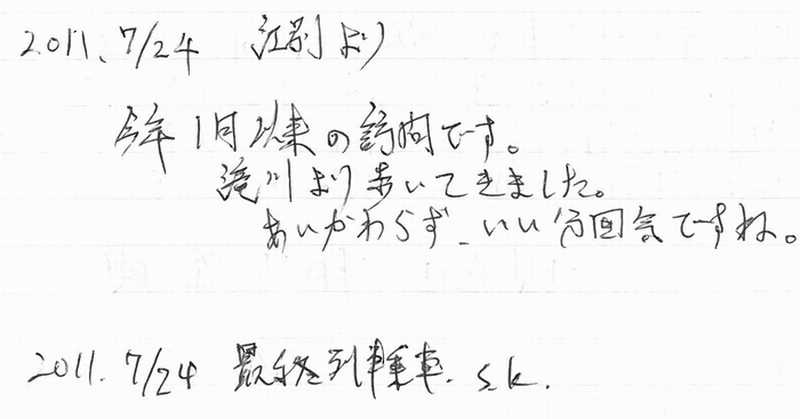 2011.7/24 江別より
今年1月以来の訪問です。
滝川より歩いてきました。
あいかわらず、いい分囲気ですね。
2011.7/24 最終列車乗車. S.K.